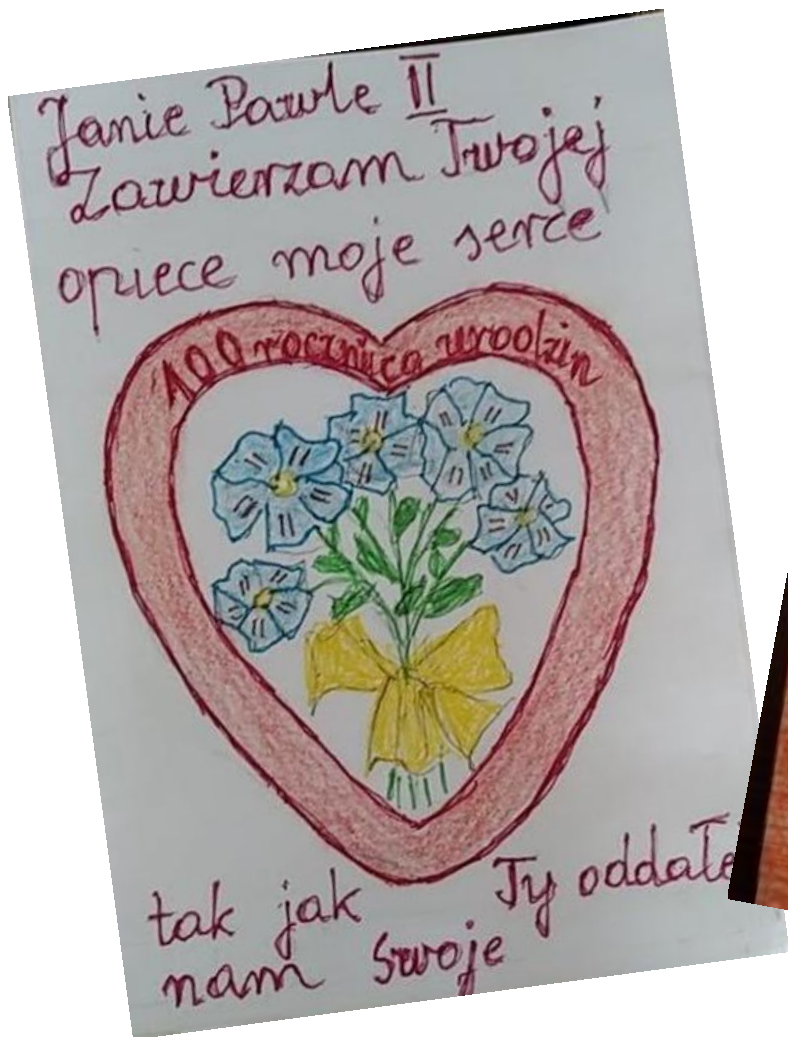 Janie Pawle II
Zawierzam Twojej
opiece moje serce
100 rocznica urodzin
tak jak Ty oddałe
nam Swoje